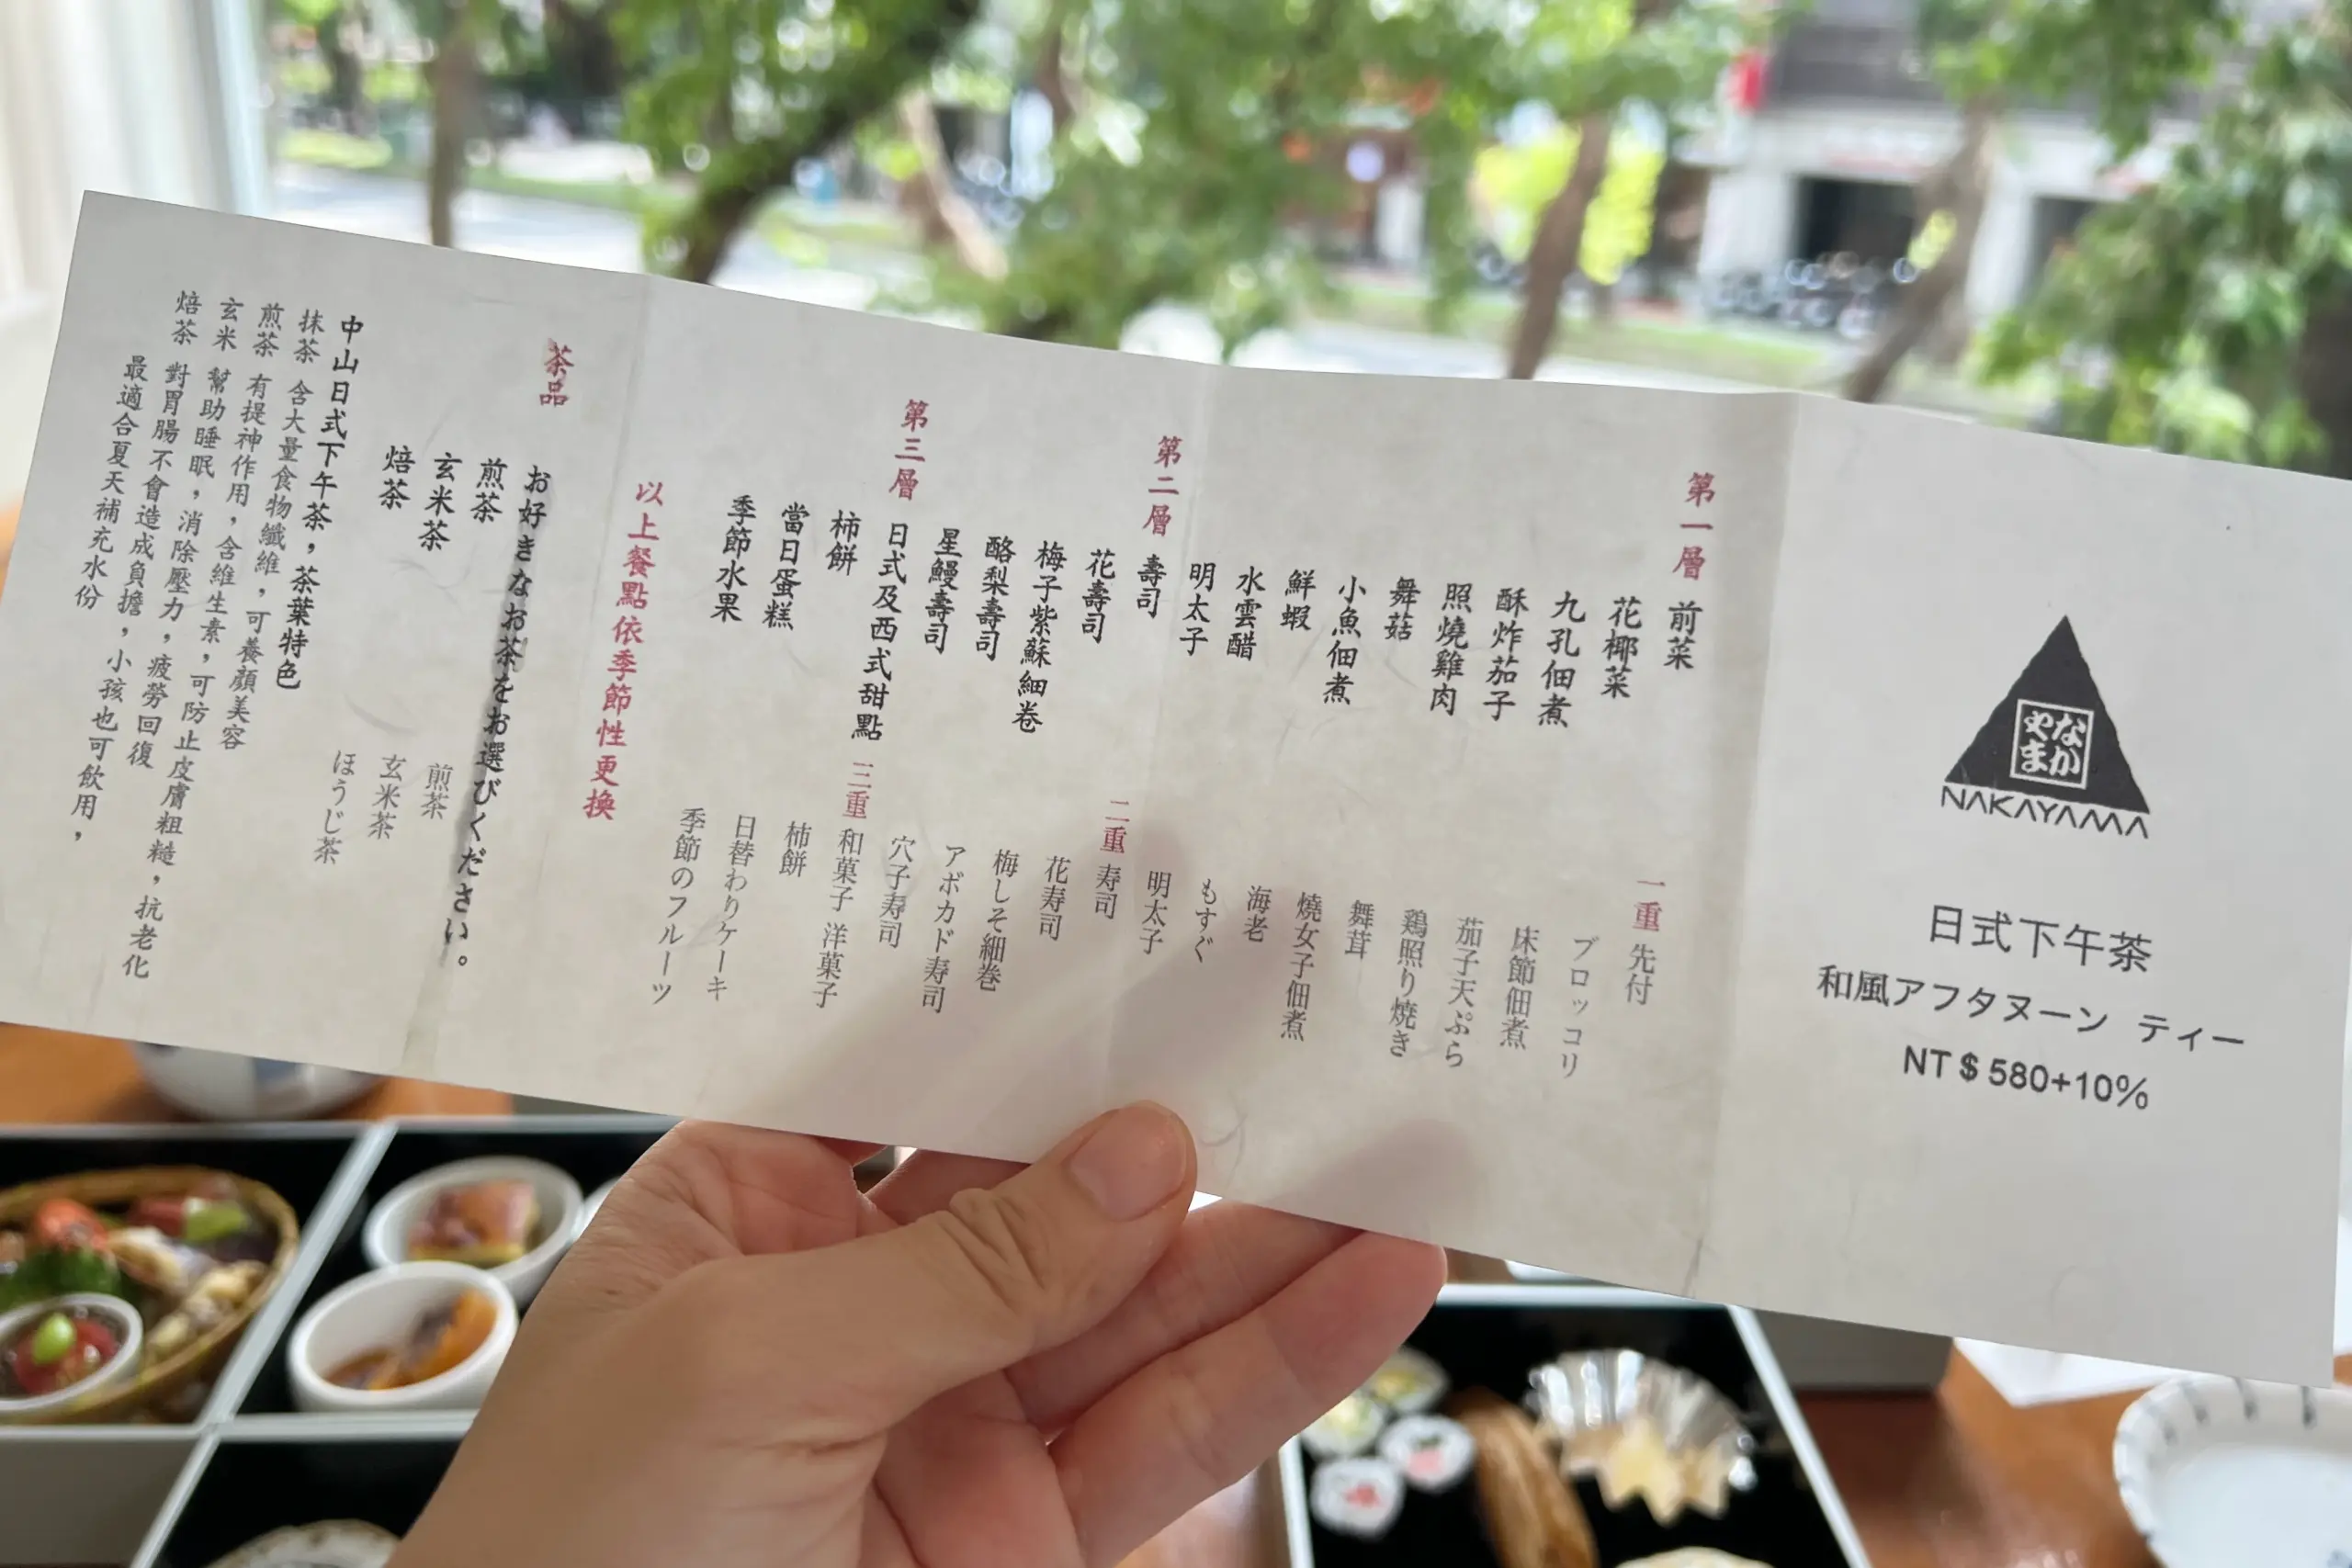 なか
やま
NAKAYAMA
日式下午茶
和風アフタヌーン ティー
NT$580+10%
第一層 前菜
花椰菜
九孔佃煮
酥炸茄子
照燒雞肉
舞菇
小魚佃煮
鮮蝦
水雲醋
明太子
第二層 壽司
花壽司
梅子紫蘇細卷
酪梨壽司
星鰻壽司
第三層 日式及西式甜點
柿餅
當日蛋糕
季節水果
一重 先付
ブロッコリ
床節佃煮
茄子天ぷら
鶏照り焼き
舞茸
燒女子佃煮
海老
もすぐ
明太子
二重 寿司
花寿司
梅しそ細巻
アボカド寿司
穴子寿司
三重 和菓子 洋菓子
柿餅
日替わりケーキ
季節のフルーツ
以上餐點依季節性更換
茶品
お好きなお茶をお選びください。
煎茶
玄米茶
焙茶
煎茶
玄米茶
ほうじ茶
中山日式下午茶，茶葉特色
抹茶 含大量食物纖維，可養顏美容
煎茶 有提神作用，含維生素，可防止皮膚粗糙，抗老化
玄米 幫助睡眠，消除壓力，疲勞回復
焙茶 對胃腸不會造成負擔，小孩也可飲用，
最適合夏天補充水份